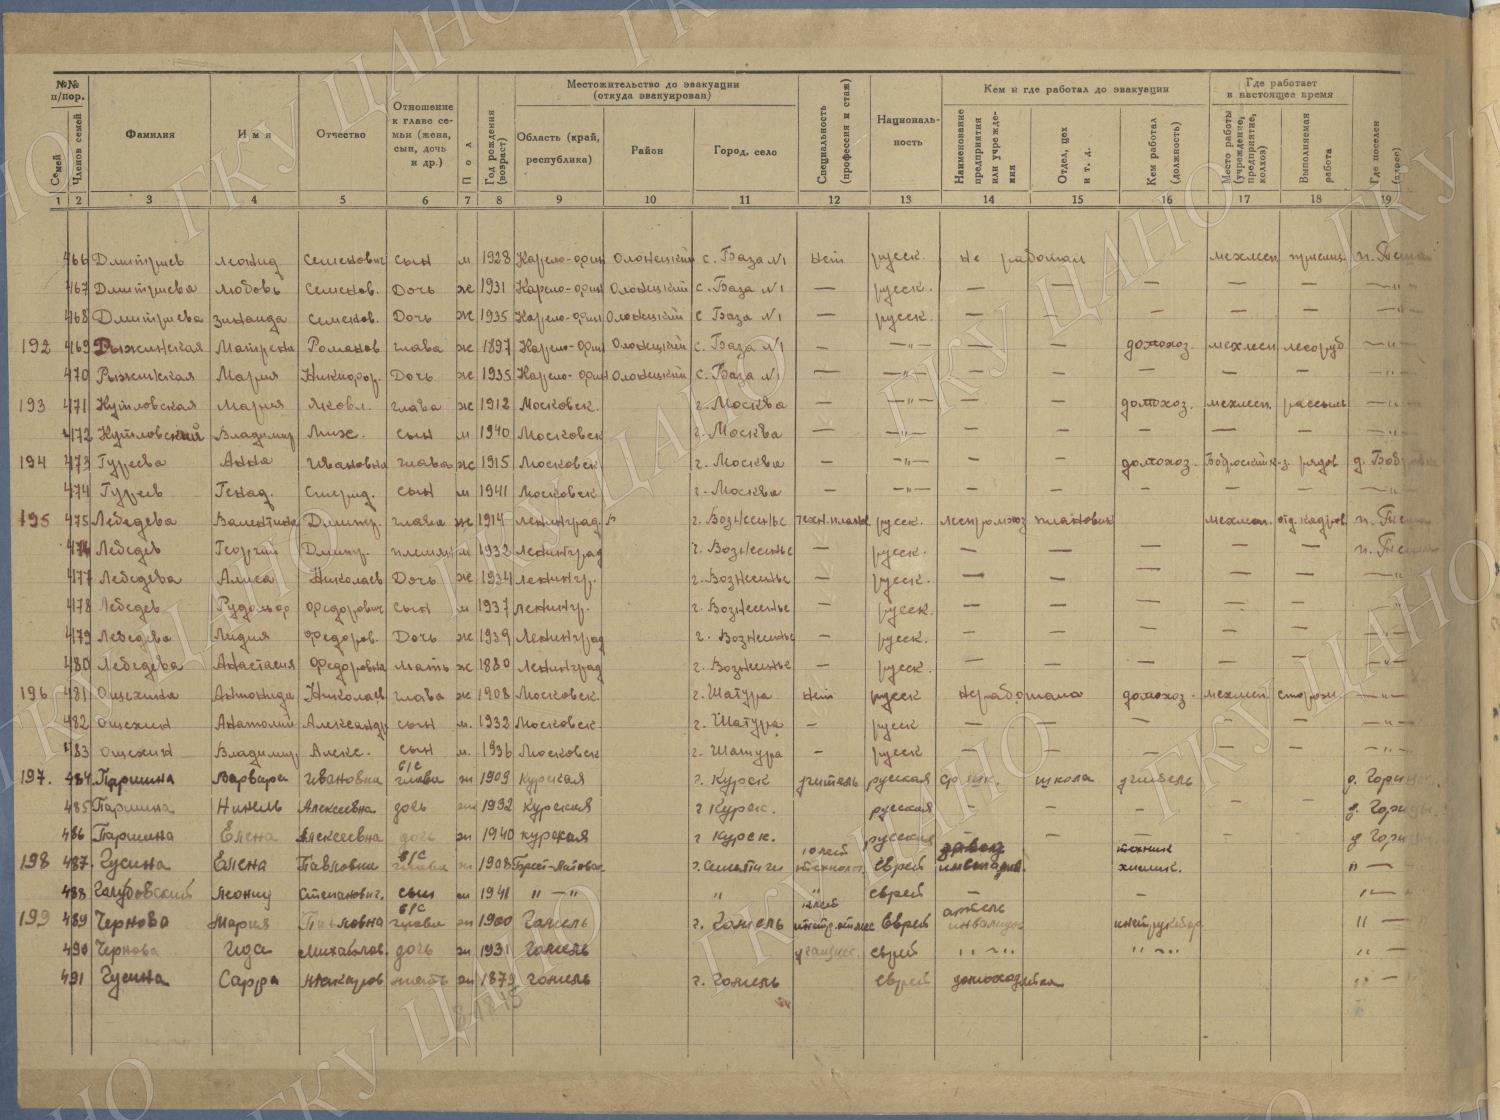 №№ п/пор. Фамилия Имя Отчество Отношение к главе семьи (жена, сын, дочь и др.) Пол Год рождения (возраст) Местожительство до эвакуации (откуда эвакуирован) Специальность (профессия и стаж) Националь-ность Кем и где работал до эвакуации Где работает в настоящее время Где поселен
Семей Членов семей Область (край, республика) Район Город, село Наименование предприятия или учрежде-ния Отдел, цех и т. д. Кем работал (должность) Место работы (учреждение, предприятие, колхоз) Выполняемая работа
1 2 3 4 5 6 7 8 9 10 11 12 13 14 15 16 17 18 19
466 Дмитриев Леонид Семенович сын м 1928 Карело-фин Олонецкий с. База №1 нет русск. не работал мехлесп
467 Дмитриева Любовь Семенов. Дочь ж 1931 Карело-фин Олонецкий с. База №1 — русск. — — — — — —„—
468 Дмитриева Зинаида Семенов. Дочь ж 1935 Карело-фин Олонецкий с База №1 — русск. — — — — — —„—
192 469 Рыжинская Матрена Романов глава ж 1897 Карело-фин Олонецкий с. База №1 — —„— — — домохоз. мехлесп лесоруб —„—
470 Рыжинская Мария Никифор. Дочь ж 1935 Карело-фин Олонецкий с. База №1 — —„— — — — — — —„—
193 471 Кутловская Мария Яковл. глава ж 1912 Московск. г. Москва — —„— — — домохоз. мехлесп. рассыль —„—
472 Кутловский Владимир Мих. сын м 1940 Московск г. Москва — —„— — — — — — —„—
194 473 Гуреева Анна Ивановна глава ж 1915 Московск. г. Москва — —„— — — домохоз. к-з. рядов д.
474 Гуреев Генад. Спирид. сын м 1941 Московск г. Москва — —„— — — — — — —„—
195 475 Лебедева Валентина Дмитр. глава ж 1914 Ленинград. г. Вознесенье техн. планов русск. леспромхоз плановик мехлесп. отд. кадров п.
476 Лебедев Георгий Дмитр. племян м 1932 Ленинград г. Вознесенье — русск. — — — — — п.
477 Лебедева Алиса Николаев Дочь ж 1934 Ленингр. г. Вознесенье — русск. — — — — — —„—
478 Лебедев Рудольф Федорович сын м 1937 Ленингр. г. Вознесенье — русск. — — — — — —„—
479 Лебедева Лидия Федоров. Дочь ж 1939 Ленинград г. Вознесенье — русск. — — — — — —„—
480 Лебедева Анастасия Федоровна мать ж 1880 Ленинград г. Вознесенье — русск. — — — — — —„—
196 481 Ощехина Антонида Николаев глава ж 1908 Московск. г. Шатура нет русск не работала домохоз. мехлесп. сторож —„—
482 Ощехин Анатолий Александр сын м. 1932 Московск. г. Шатура — русск — — — — — —„—
483 Ощехин Владимир Алекс. сын м. 1936 Московск г. Шатура — русск — — — — — —„—
197. 484 Паршина Варвара Ивановна б/с глава ж 1909 Курская г. Курск учитель русская ср. шк. школа учитель д.
485 Паршина Нинель Алексеевна дочь ж 1932 Курская г Курск. русская — — — — — д.
486 Паршина Елена Алексеевна дочь ж 1940 Курская г Курск. русская — — — д
198 487. Гусина Елена Павловна б/с глава ж 1908 10 лет технолог еврей завод техник химик. „ —
488 Голубовский Леонид Степанович. сын м 1941 „ — „ „ „ еврей — — „ —
199 489 Чернова Мария Павловна б/с глава ж 1900 Гомель г. Гомель еврей артель инвалидов инструктор „ —
490 Чернова Ида Михайлов. дочь ж 1931 Гомель учащ. еврей „ ~ „ „ ~ „ „ —
491 Гусина Сарра мать ж 1879 Гомель г. Гомель еврей домохозяйка „ —